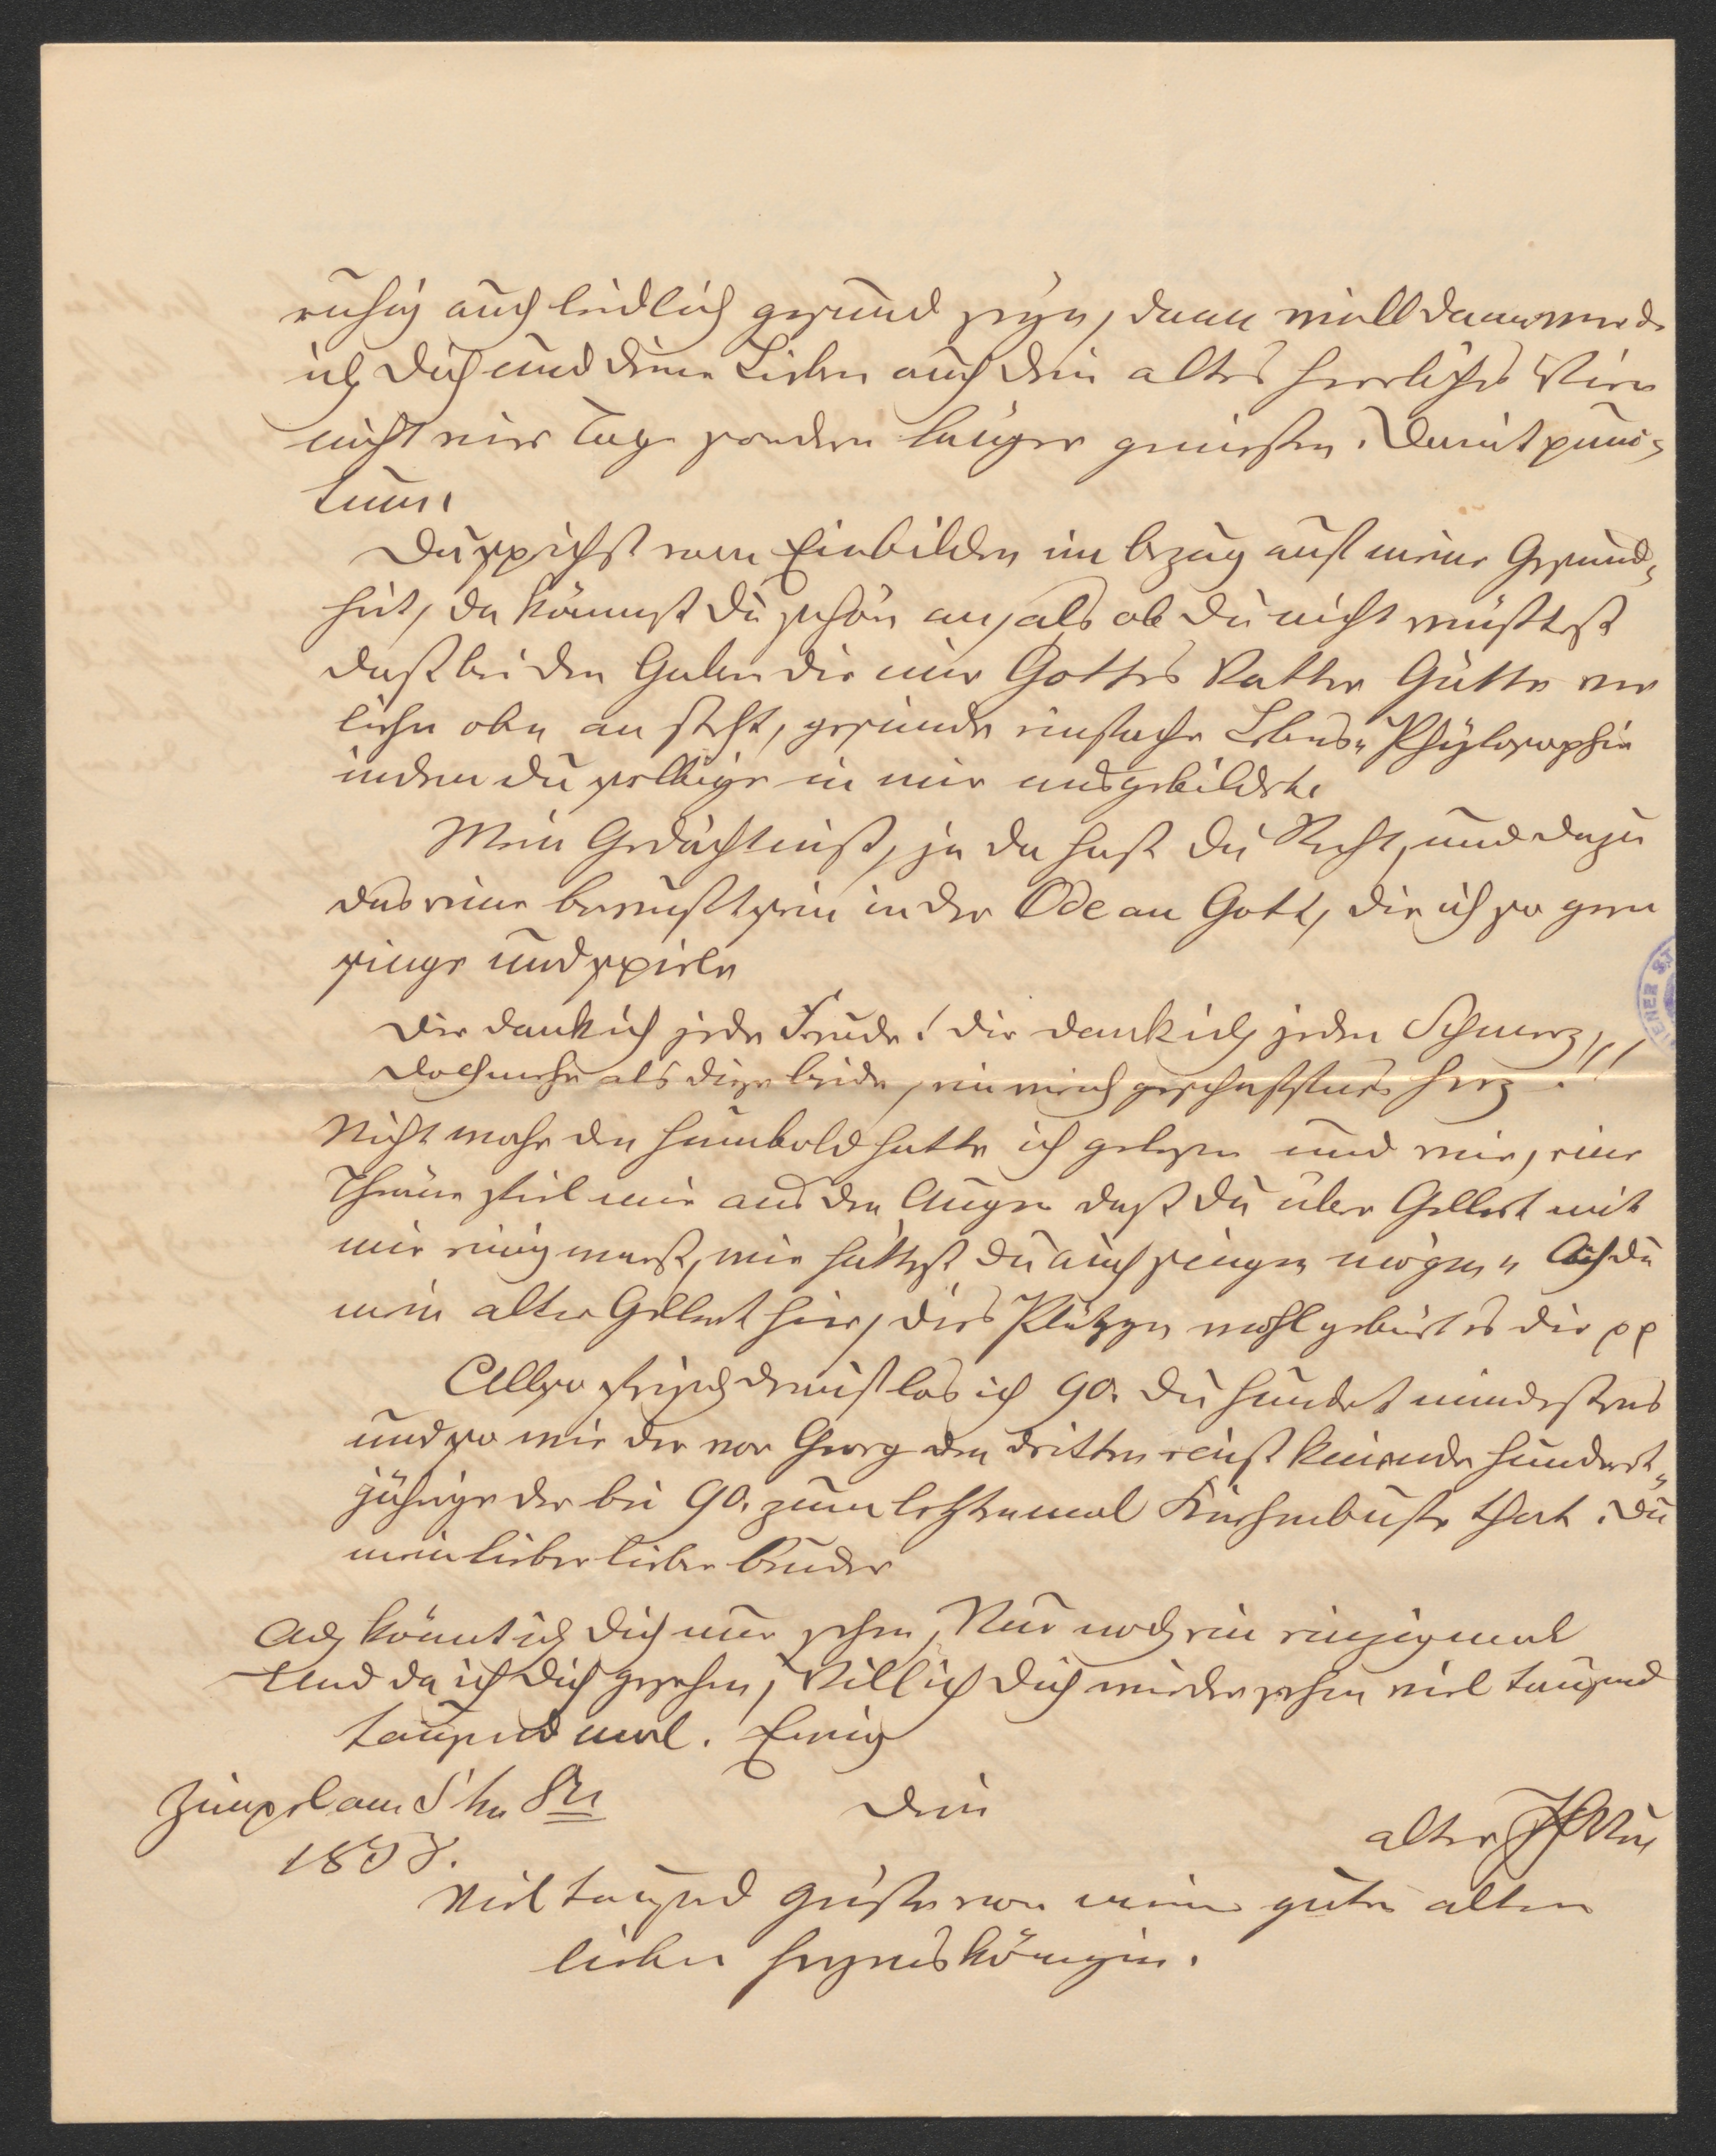 ruhig auch leidlich gesund seyn, dann will dann werde
ich Dich und deine Lieben auch dein altes herrliches Wien
nicht vier Tage sondern länger genießen. Damit punc-
tum.
Du sprichst vom Einbilden im bezug auf meine Gesund-
heit, da kömmst Du schön an, als ob Du nicht wüßtest
daß bei den Gaben die mir Gottes Vatter Gütte ver
liehn oben an steht, gesunde einfache Lebens„Phylosophie
indem Du selbige in mir ausgebildet.
Mein Gedächtniß, ja da hast Du Recht, und dazu
das reine bewußtsein in der Ode an Gott, die ich so gern
singe und spiele
Dir dank ich jede Freude! dir dank ich jeden Schmerz,
Doch mehr als diese beide, ein mich geschafftnes Herz!!!
Nicht wahr den Humbold hatte ich gelesen und wie, eine
Thräne fiel mir aus den Augen daß Du über Gellert mit
mir einig warst, wie hättest Du auch singen mögen „ Ach du
mein alter Gellert hier, dies Pläzgen wohl gebürt es dir pp
Allso frisch drauf los ich 90. Du hundert mindestens
und so wie der vor Georg den dritten einst hundert„
jährige der bei 90. zum letztenmal Kirchenbuße that. Du
mein lieber lieber bruder
Ach könnt ich Dich nur sehen, Nur noch ein einzigmal
Und da ich Dich gesehen, Will ich Dich wiedersehen viel tausend
tausend mal. Ewig
Dein
Zimpel am
alter
Viel tausend Grüße von meiner guten alten
lieben